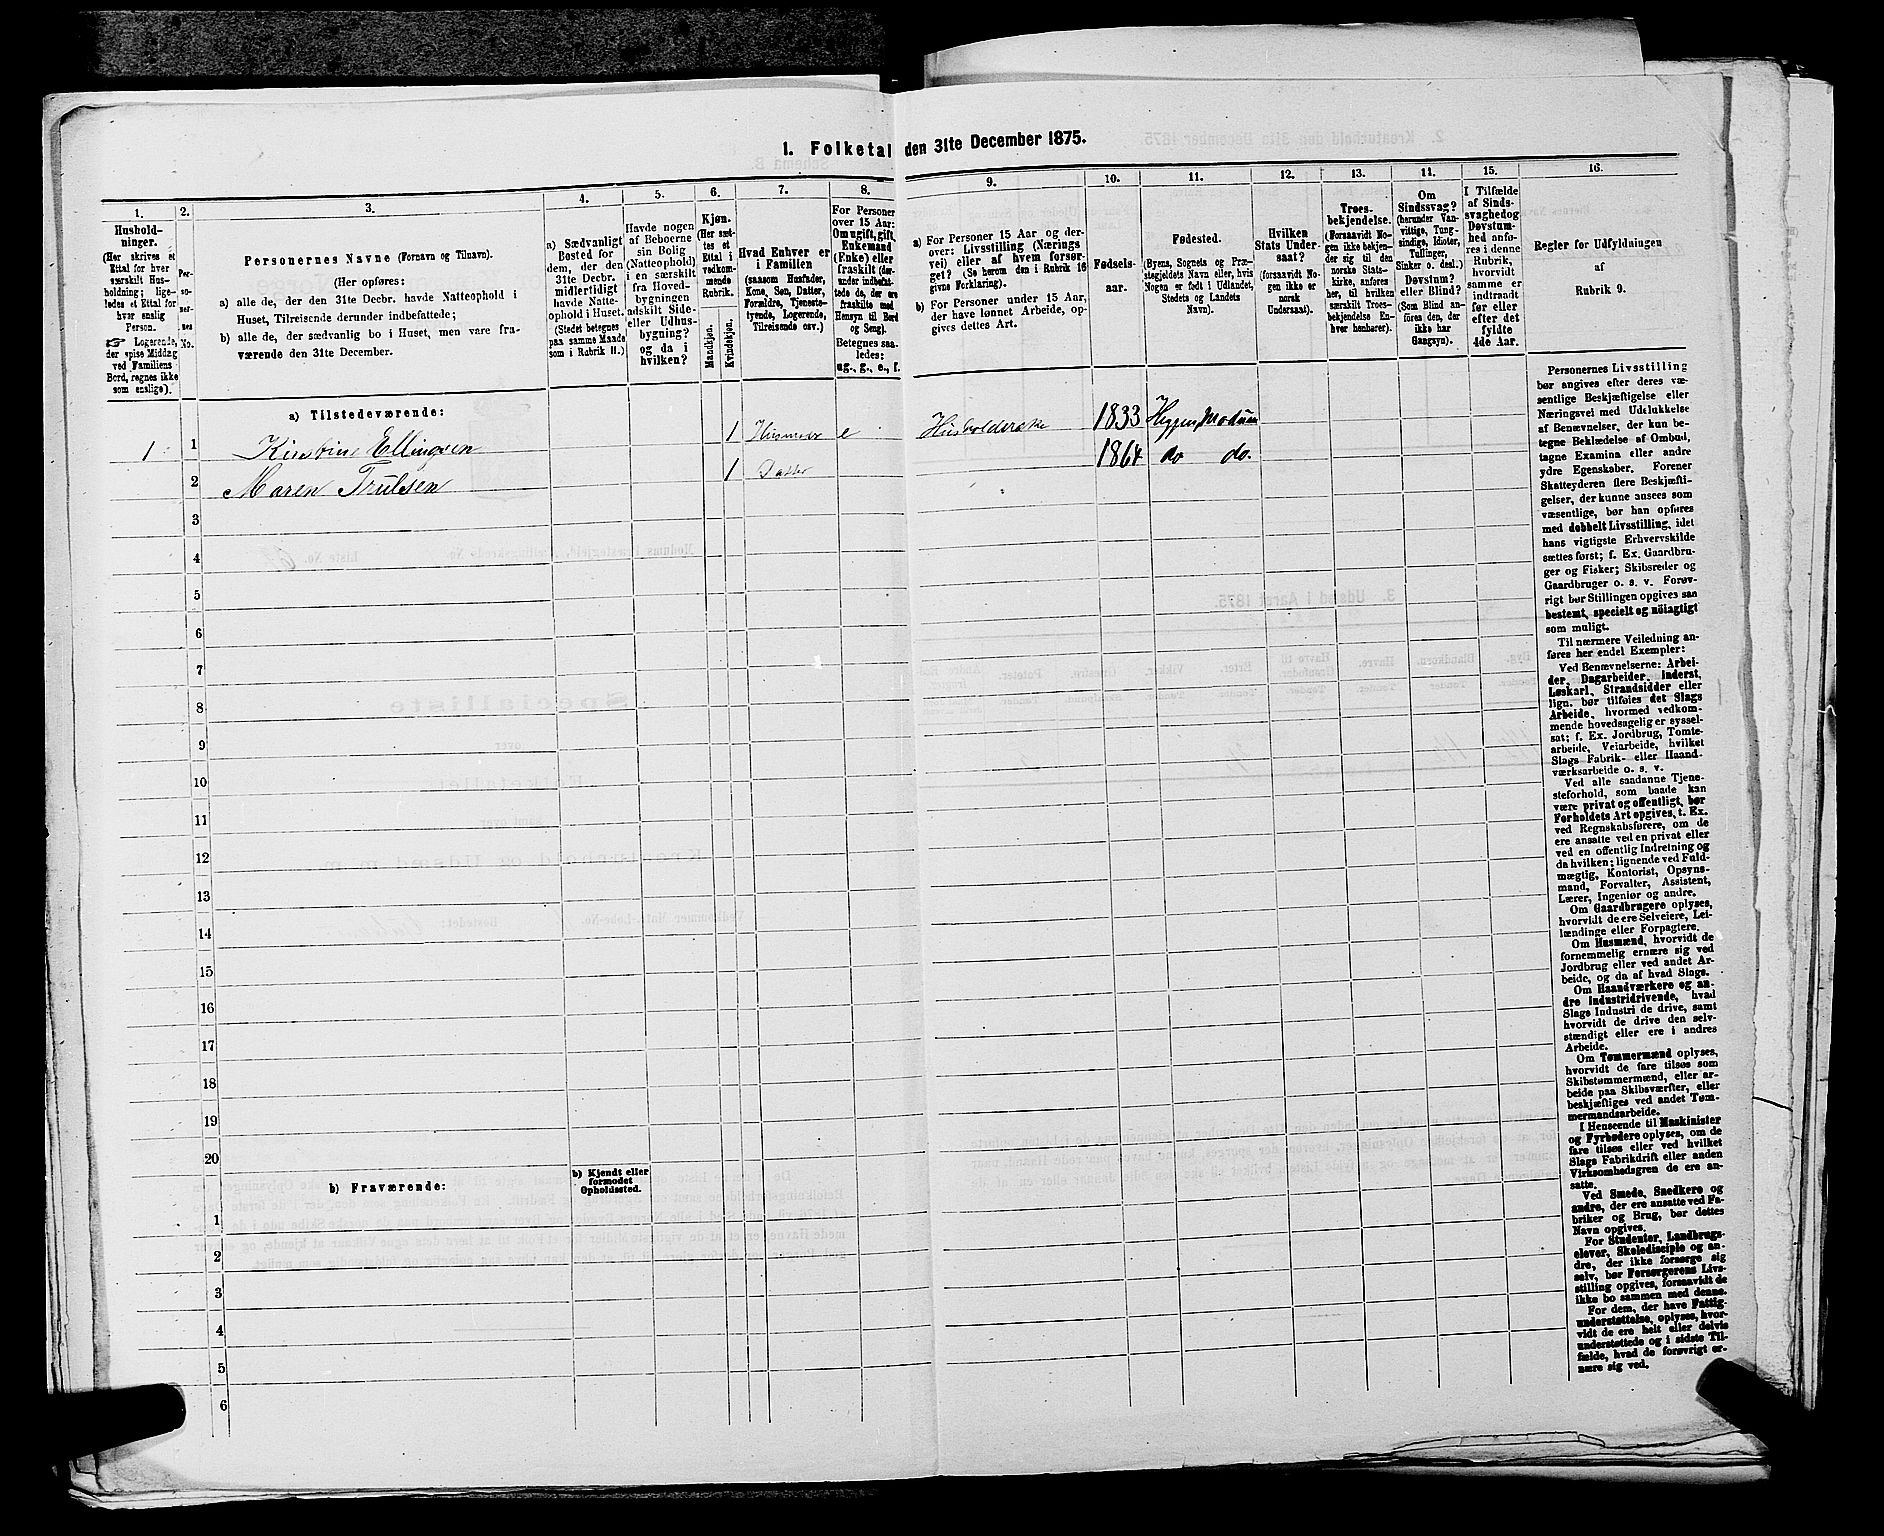 1. Folketal den 31te December 1875.
1.
2.
3.
4.
5.
6.
7.
8.
9.
10.
11.
12.
13.
14.
15.
16.
Husholdninger.
(Her skrives et
Ettal for hver
særskilt Husholdning;
ligeledes et Ettal for
hver enslig
Person.
☞ Logerende,
der spise Middag
ved Familiens
Bord, regnes ikke
som enslige).
Personernes
No.
Personernes Navne (Fornavn og Tilnavn).
(Her opføres:
a) alle de, der den 31te Decbr. havde Natteophold i
Huset, Tilreisende derunder indbefattede;
b) alle de, der sædvanlig bo i Huset, men vare fraværende
den 31te December.
a) Sædvanligt
Bosted for
dem, der den
31te Decbr.
midlertidigt
havde Natteophold
i Huset.
(Stedet betegnes
paa samme Maade
som i Rubrik 11.)
Havde nogen
af Beboerne
sin Bolig
(Natteophold)
i en særskilt
fra Hovedbygningen
adskilt Side-
eller Udhusbygning?
og da i
hvilken?
Kjøn.
(Her sættes
et
Ettal i
vedkommende
Rubrik.
Mandkjøn.
Kvindekjøn.
Hvad Enhver er
i Familien
(saasom Husfader,
Kone, Søn, Datter,
Forældre, Tjenestetyende,
Logerende,
Tilreisende osv.)
For Personer
over 15 Aar:
Om ugift, gift,
Enkemand
(Enke) eller
fraskilt (derunder
indbefattede
de, der ere
fraskilte med
Hensyn til Bord
og Seng).
Betegnes saaledes:
ug., g., e., f.
a) For Personer 15 Aar og derover:
Livsstilling (Næringsvei)
eller af hvem forsørget?
(Se herom den i Rubrik 16
givne Forklaring).
b) For Personer under 15 Aar,
der have lønnet Arbeide, opgives
dettes Art.
Fødselsaar.
Fødested.
(Byens, Sognets og Præstegjeldets
Navn eller, hvis
Nogen er født i Udlandet,
Stedets og Landets
Navn).
Hvilken
Stats Undersaat?
(forsaavidt Nogen
ikke er
norsk
Undersaat).
Troesbekjendelse.
(Forsaavidt Nogen
ikke bekjender
sig til den
norske Statskirke,
anføres
her, til hvilken
særskilt Troesbekjendelse
Enhver
henhører).
Om
Sindssvag?
(herunder Vanvittige,
Tungsindige,
Idioter,
Tullinger,
Sinker o. desl.)
Døvstum?
eller Blind?
(Som Blind anføres
den, der
ikke har
Gangsyn).
I Tilfælde
af Sindssvaghed
og
Døvstumhed
anføres
i denne
Rubrik,
hvorvidt
samme er
indtraadt
før eller
efter det
fyldte
4de Aar.
Regler for Udfyldningen
af
Rubrik 9.
a) Tilstedeværende:
1 1 Kirstine Ellingsen 1 Husmoer e Husholderske 1833 Heggen, Modum
2 Maren Trulsen 1 Datter 1864 do do.
3
4
5
6
7
8
9
10
11
12
13
14
15
16
17
18
19
20
b) Fraværende:
b) Kjendt eller
formodet
Opholdssted.
1
2
3
4
5
6
Personernes Livsstilling
bør angives efter deres væsentlige
Beskjæftigelse eller
Næringsvei med Udelukkelse
af Benævnelser, der kun betegne
Beklædelse af Ombud,
tagne Examina eller andre
ydre Egenskaber. Forener
Skatteyderen flere Beskjæftigelser,
der kunne ansees som
væsentlige, bør han opføres
med dobbelt Livsstilling, idet
hans vigtigste Erhvervskilde
sættes først; f. Ex. Gaardbruger
og Fisker; Skibsreder og
Gaardbruger o. s. v. Forøvrigt
bør Stillingen opgives saa
bestemt, specielt og nøiagtigt
som muligt.
Til nærmere Veiledning anføres
her endel Exempler:
Ved Benævnelserne: Arbeider,
Dagarbeider, Inderst,
Løskarl, Strandsidder eller
lign. bør tilføies det Slags
Arbeide, hvormed vedkommende
hovedsagelig er sysselsat;
f. Ex. Jordbrug, Tomtearbeide,
Veiarbeide, hvilket
Slags Fabrik- eller Haandværksarbeide
o. s. v.
Ved alle saadanne Tjenesteforhold,
som baade kan
være privat og offentligt, bør
Forholdets Art opgives, t. Ex.
ved Regnskabsførere, om de
ere ansatte ved en privat eller
ved en offentlig Indretning og
da hvilken; lignende ved Fuldmægtig,
Kontorist, Opsynsmand,
Forvalter, Assistent,
Lærer, Ingeniør og andre.
Om Gaardbrugere oplyses,
hvorvidt de ere Selveiere, Leilændinge
eller Forpagtere.
Om Husmænd, hvorvidt de
fornemmelig ernære sig ved
Jordbrug eller ved andet Arbeide,
og da af hvad Slags.
Om Haandværkere og andre
Industridrivende, hvad
Slags Industri de drive, samt
hvorvidt de drive den selvstændigt
eller ere i andres
Arbeide.
Om Tømmermænd oplyses,
hvorvidt de fare tilsøs som
Skibstømmermænd, eller arbeide
paa Skibsværfter, eller
beskjæftiges ved andet Tømmermandsarbeide.
I Henseende til Maskinister
og Fyrbødere oplyses, om de
fare tilsøs eller ved hvilket
Slags Fabrikdrift eller anden
Virksomhedsgren de ere ansatte.
Ved Smede, Snedkere og
andre, der ere ansatte ved Fabriker
og Brug, bør dettes
Navn opgives.
For Studenter, Landbrugselever,
Skoledisciple og andre,
der ikke forsørge sig
selv, bør Forsørgerens Livsstilling
opgives, forsaavidt de
ikke bo sammen med denne.
For dem, der have Fattigunderstøttelse,
oplyses, hvorvidt
de ere helt eller delvis
understøttede og i sidste Tilfælde,
hvad de forøvrigt ernære
sig ved.